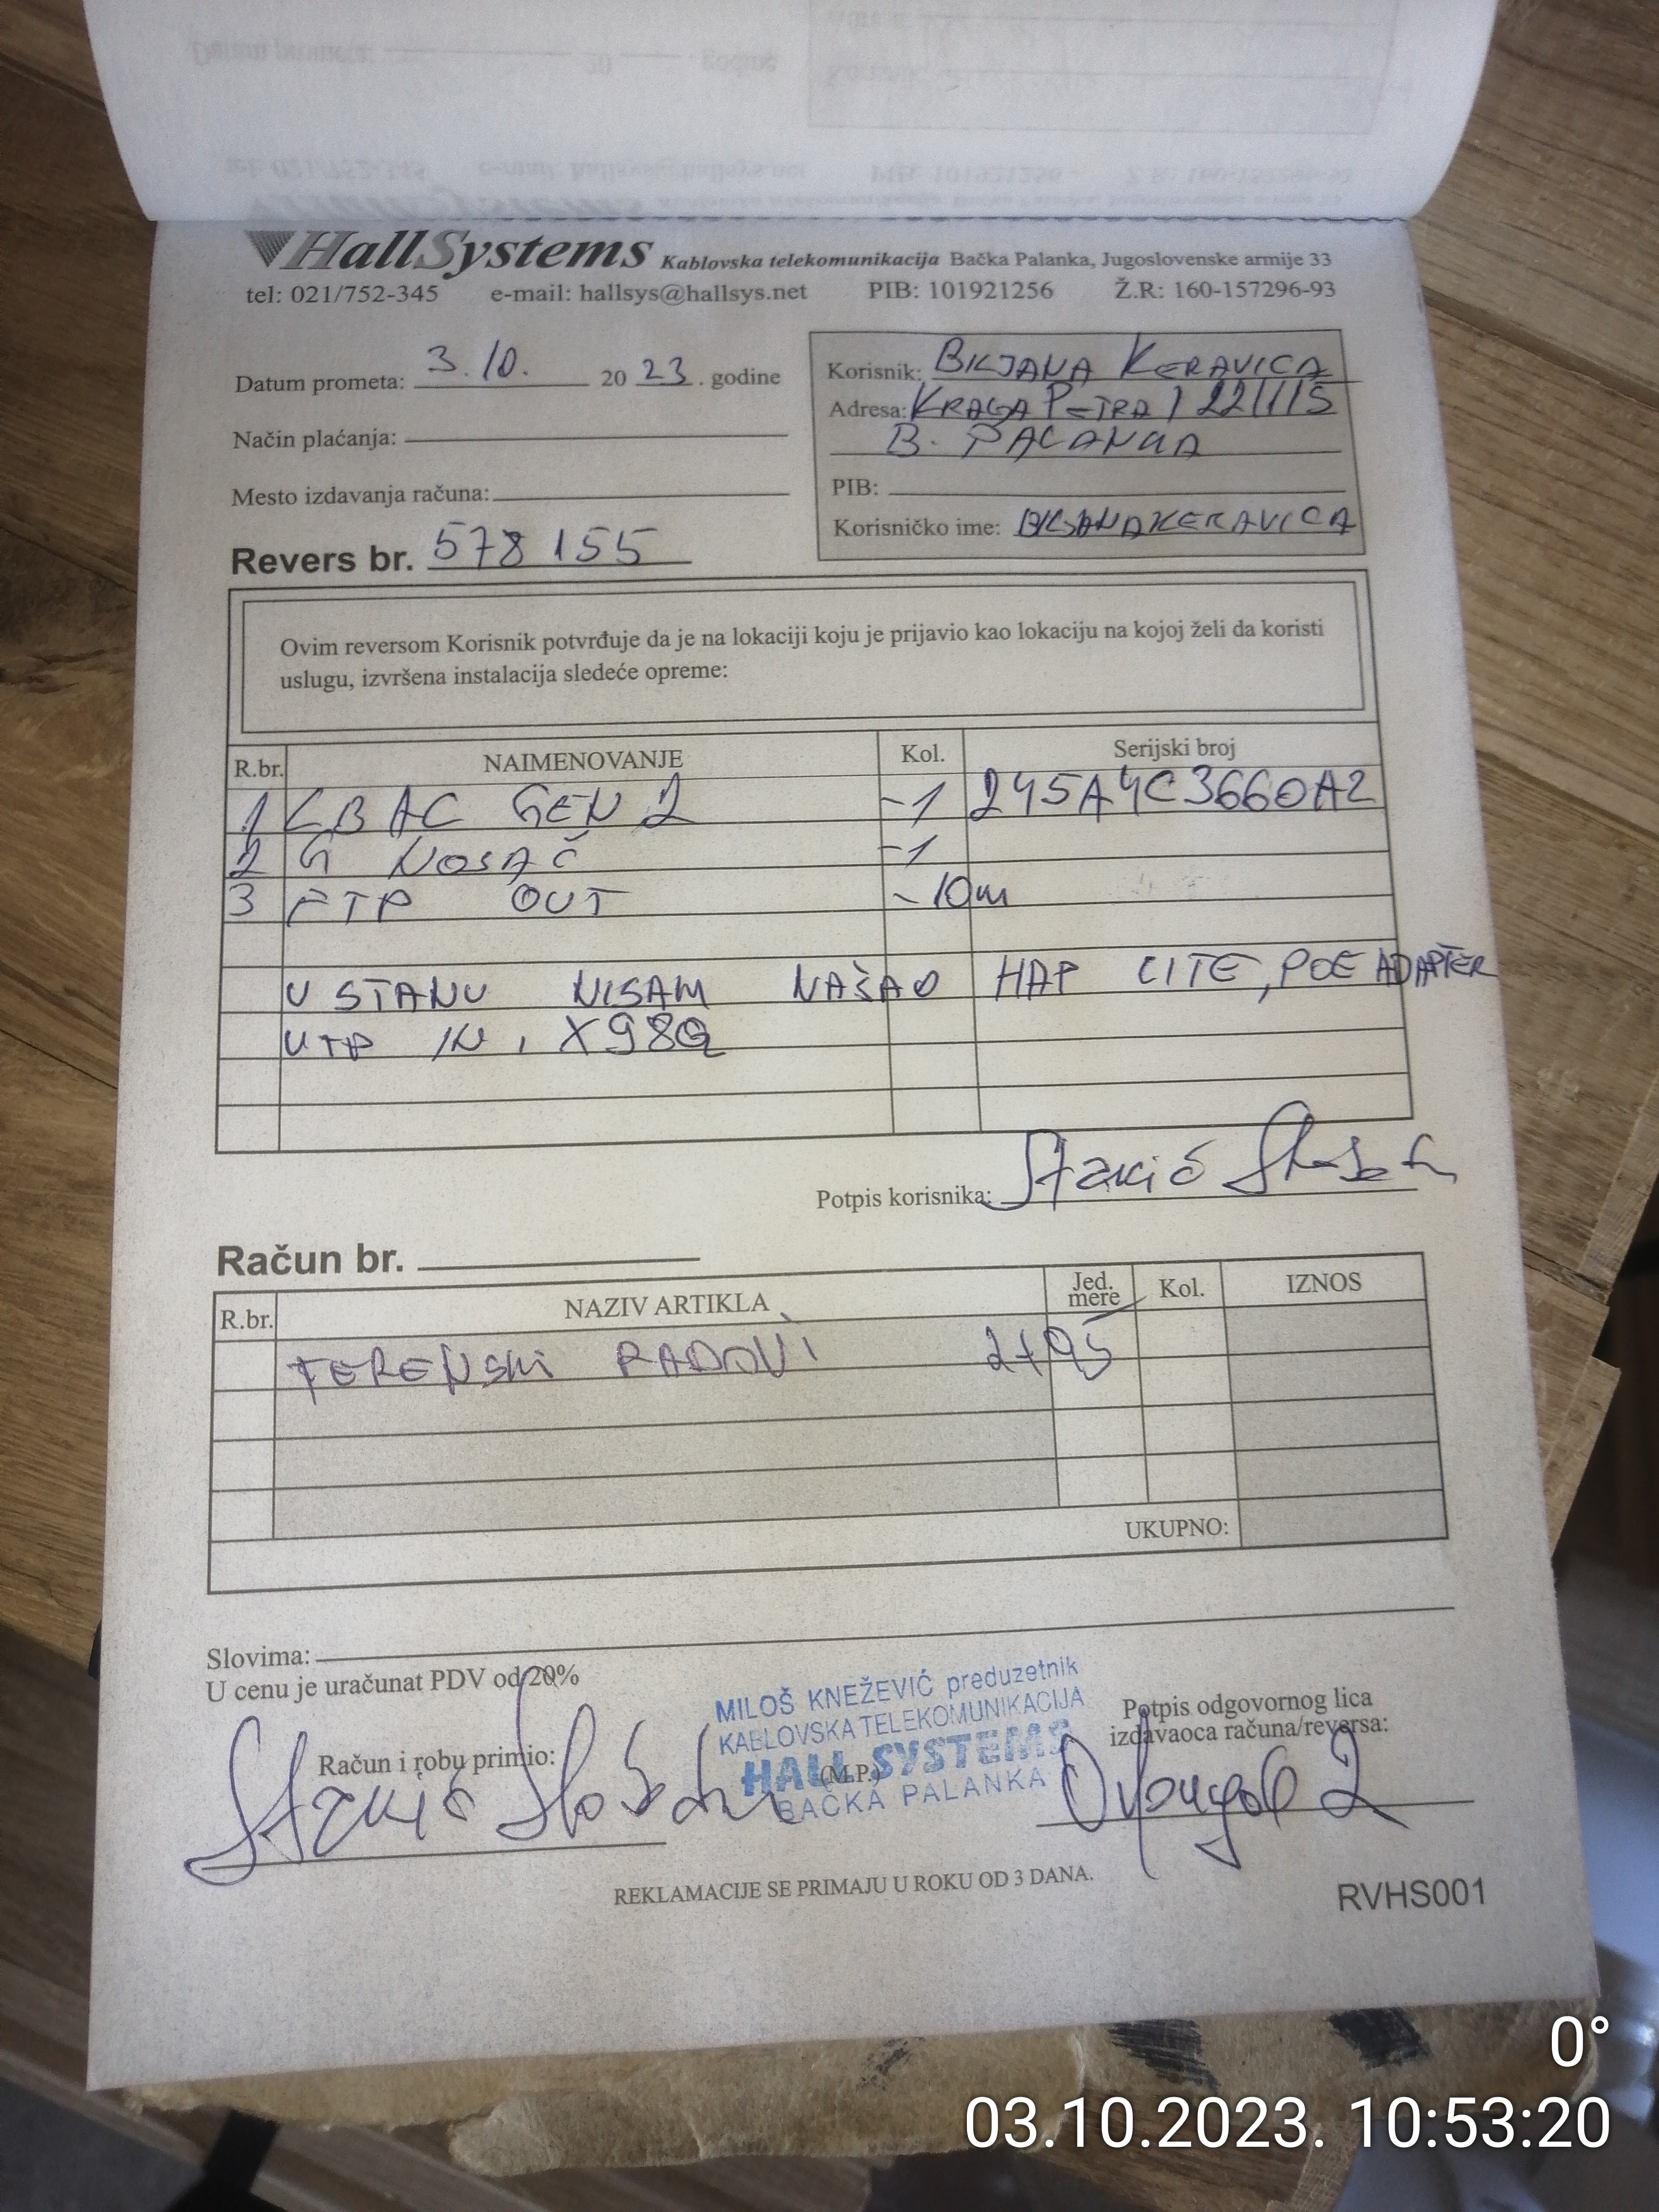 HallSystems Kablovska telekomunikacija Bačka Palanka, Jugoslovenske armije 33
tel: 021/752-345 e-mail: hallsys@hallsys.net PIB: 101921256 Ž.R: 160-157296-93
Datum prometa: 3.10. 20 23. godine
Način plaćanja:
Mesto izdavanja računa:
Revers br. 578155
Korisnik: BILJANA KERAVICA
Adresa: KRALJA PETRA I 22/1/5
B. PALANKA
PIB:
Korisničko ime: BILJANAKERAVICA
Ovim reversom Korisnik potvrđuje da je na lokaciji koju je prijavio kao lokaciju na kojoj želi da koristi
uslugu, izvršena instalacija sledeće opreme:
R.br. NAIMENOVANJE Kol. Serijski broj
1 LB AC GEN 2 -1 245A4C3660A2
2 G NOSAČ -1
3 FTP OUT -10m
U STANU NISAM NAŠAO HAP LITE, POE ADAPTER
UTP IN, X98Q
Potpis korisnika: Stakić
Račun br.
R.br. NAZIV ARTIKLA Jed. mere Kol. IZNOS
TERENSKI RADOVI
UKUPNO:
Slovima:
U cenu je uračunat PDV od 20%
Račun i robu primio: Stakić
MILOŠ KNEŽEVIĆ preduzetnik
KABLOVSKA TELEKOMUNIKACIJA
HALL SYSTEMS
(M.P.)
BAČKA PALANKA
Potpis odgovornog lica
izdavaoca računa/reversa:
REKLAMACIJE SE PRIMAJU U ROKU OD 3 DANA.
RVHS001
0°
03.10.2023. 10:53:20